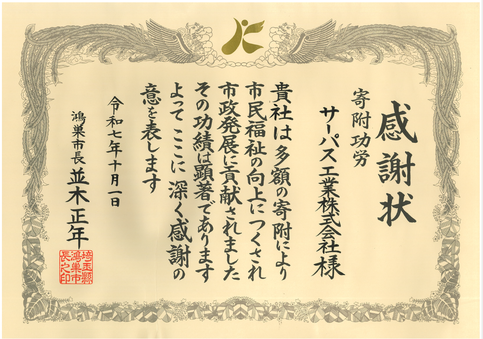 感謝状
寄附功労
サーパス工業株式会社様
貴社は多額の寄附により
市民福祉の向上につくされ
市政発展に貢献されました
その功績は顕著であります
よってここに深く感謝の
意を表します
令和七年十月一日
鴻巣市長 並木正年
埼玉県
鴻巣市
長之印